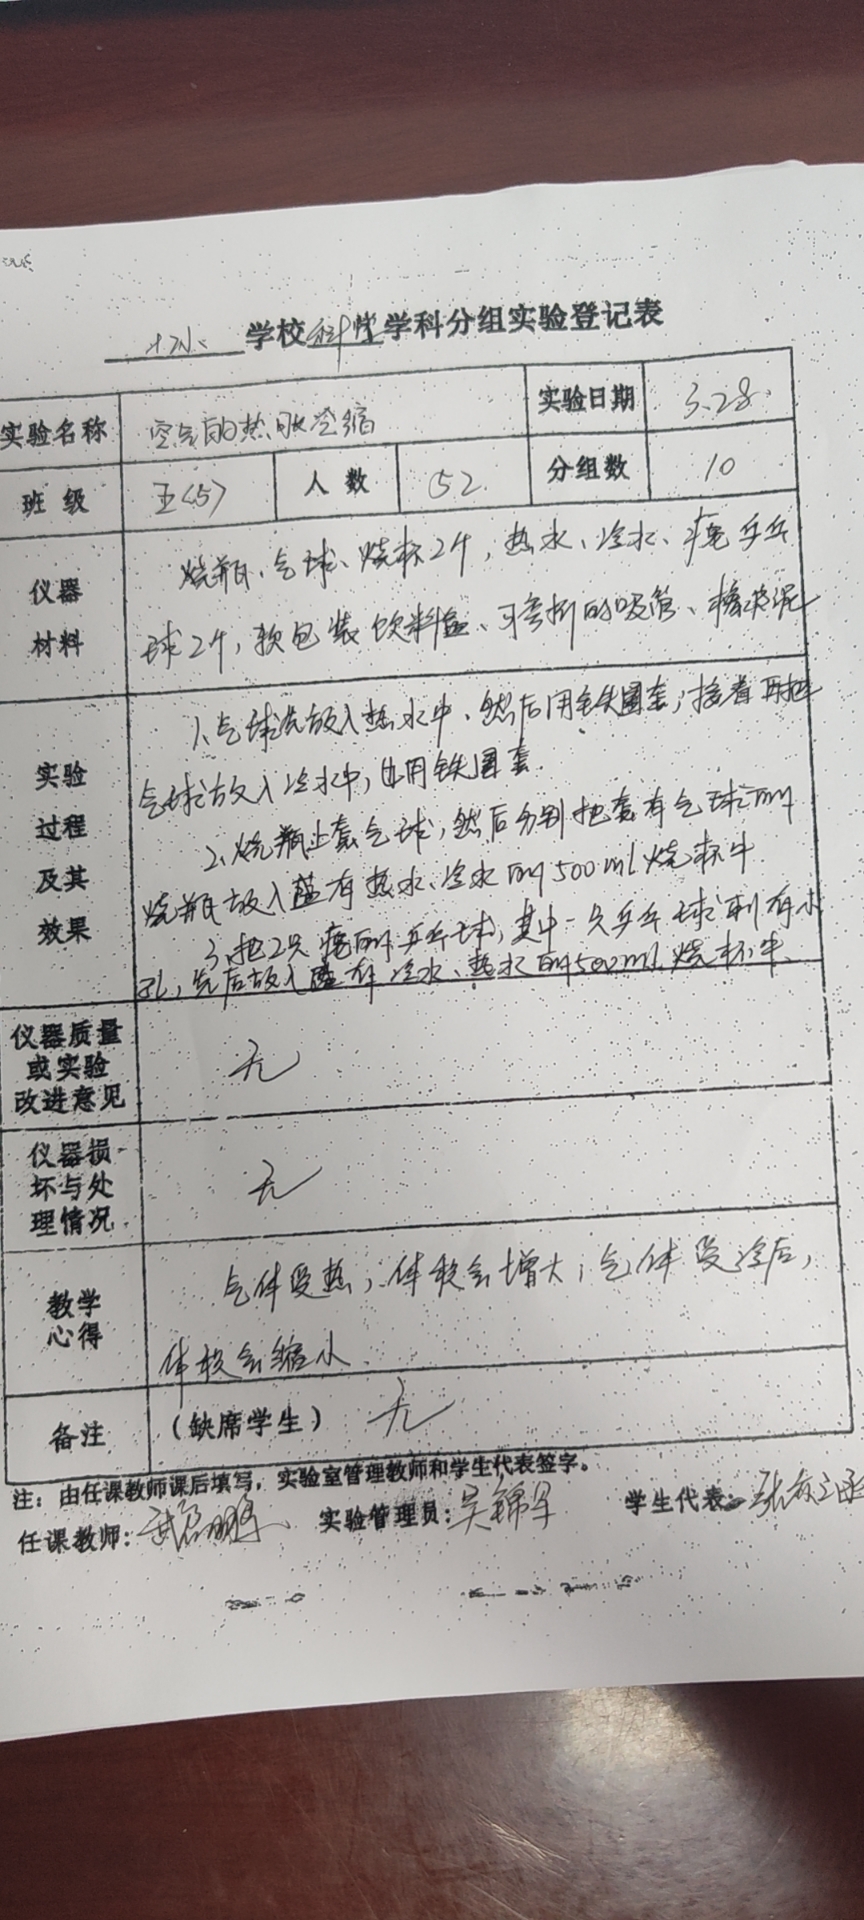 学校科学学科分组实验登记表
实验名称 空气的热胀冷缩 实验日期 3.28.
班级 五<5> 人数 52 分组数 10
仪器材料
烧瓶、气球、烧杯2个，热水、冷水、瘪乒乓
球2个，软包装饮料盒、可弯折的吸管、橡皮泥
实验过程及其效果
1、气球先放入热水中、然后用铁圈套；接着再把
气球放入冷水中，也用铁圈套.
2、烧瓶上套气球，然后分别把套有气球的
烧瓶放入盛有热水、冷水的500ml烧杯中.
3、把2只瘪的乒乓球，其中一只乒乓球刺有小
孔，先后放入盛有冷水、热水的500ml烧杯中.
仪器质量或实验改进意见 无
仪器损坏与处理情况 无
教学心得
气体受热，体积会增大；气体受冷后，
体积会缩小.
备注 （缺席学生） 无
注：由任课教师课后填写，实验室管理教师和学生代表签字。
任课教师： 实验管理员：吴锦军 学生代表：